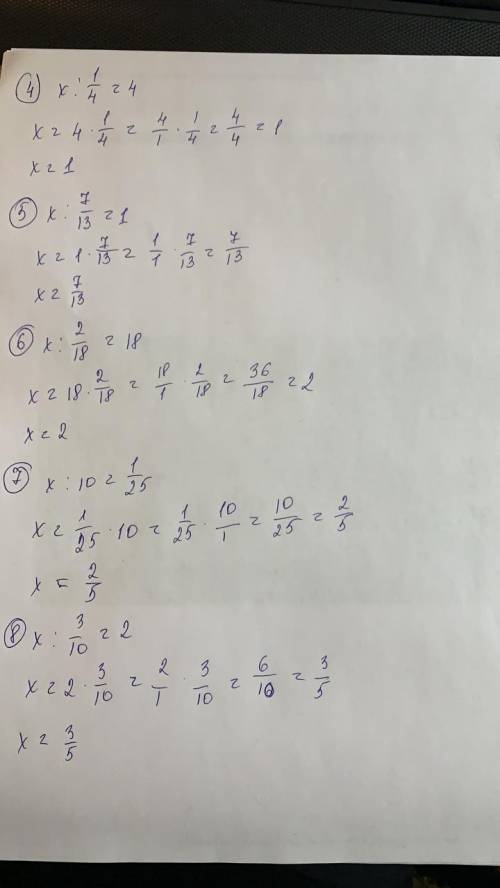 ④ x : 1/4 = 4
x = 4 · 1/4 = 4/1 · 1/4 = 4/4 = 1
x = 1
⑤ x : 7/13 = 1
x = 1 · 7/13 = 1/1 · 7/13 = 7/13
x = 7/13
⑥ x : 2/18 = 18
x = 18 · 2/18 = 18/1 · 2/18 = 36/18 = 2
x = 2
⑦ x : 10 = 1/25
x = 1/25 · 10 = 1/25 · 10/1 = 10/25 = 2/5
x = 2/5
⑧ x : 3/10 = 2
x = 2 · 3/10 = 2/1 · 3/10 = 6/10 = 3/5
x = 3/5